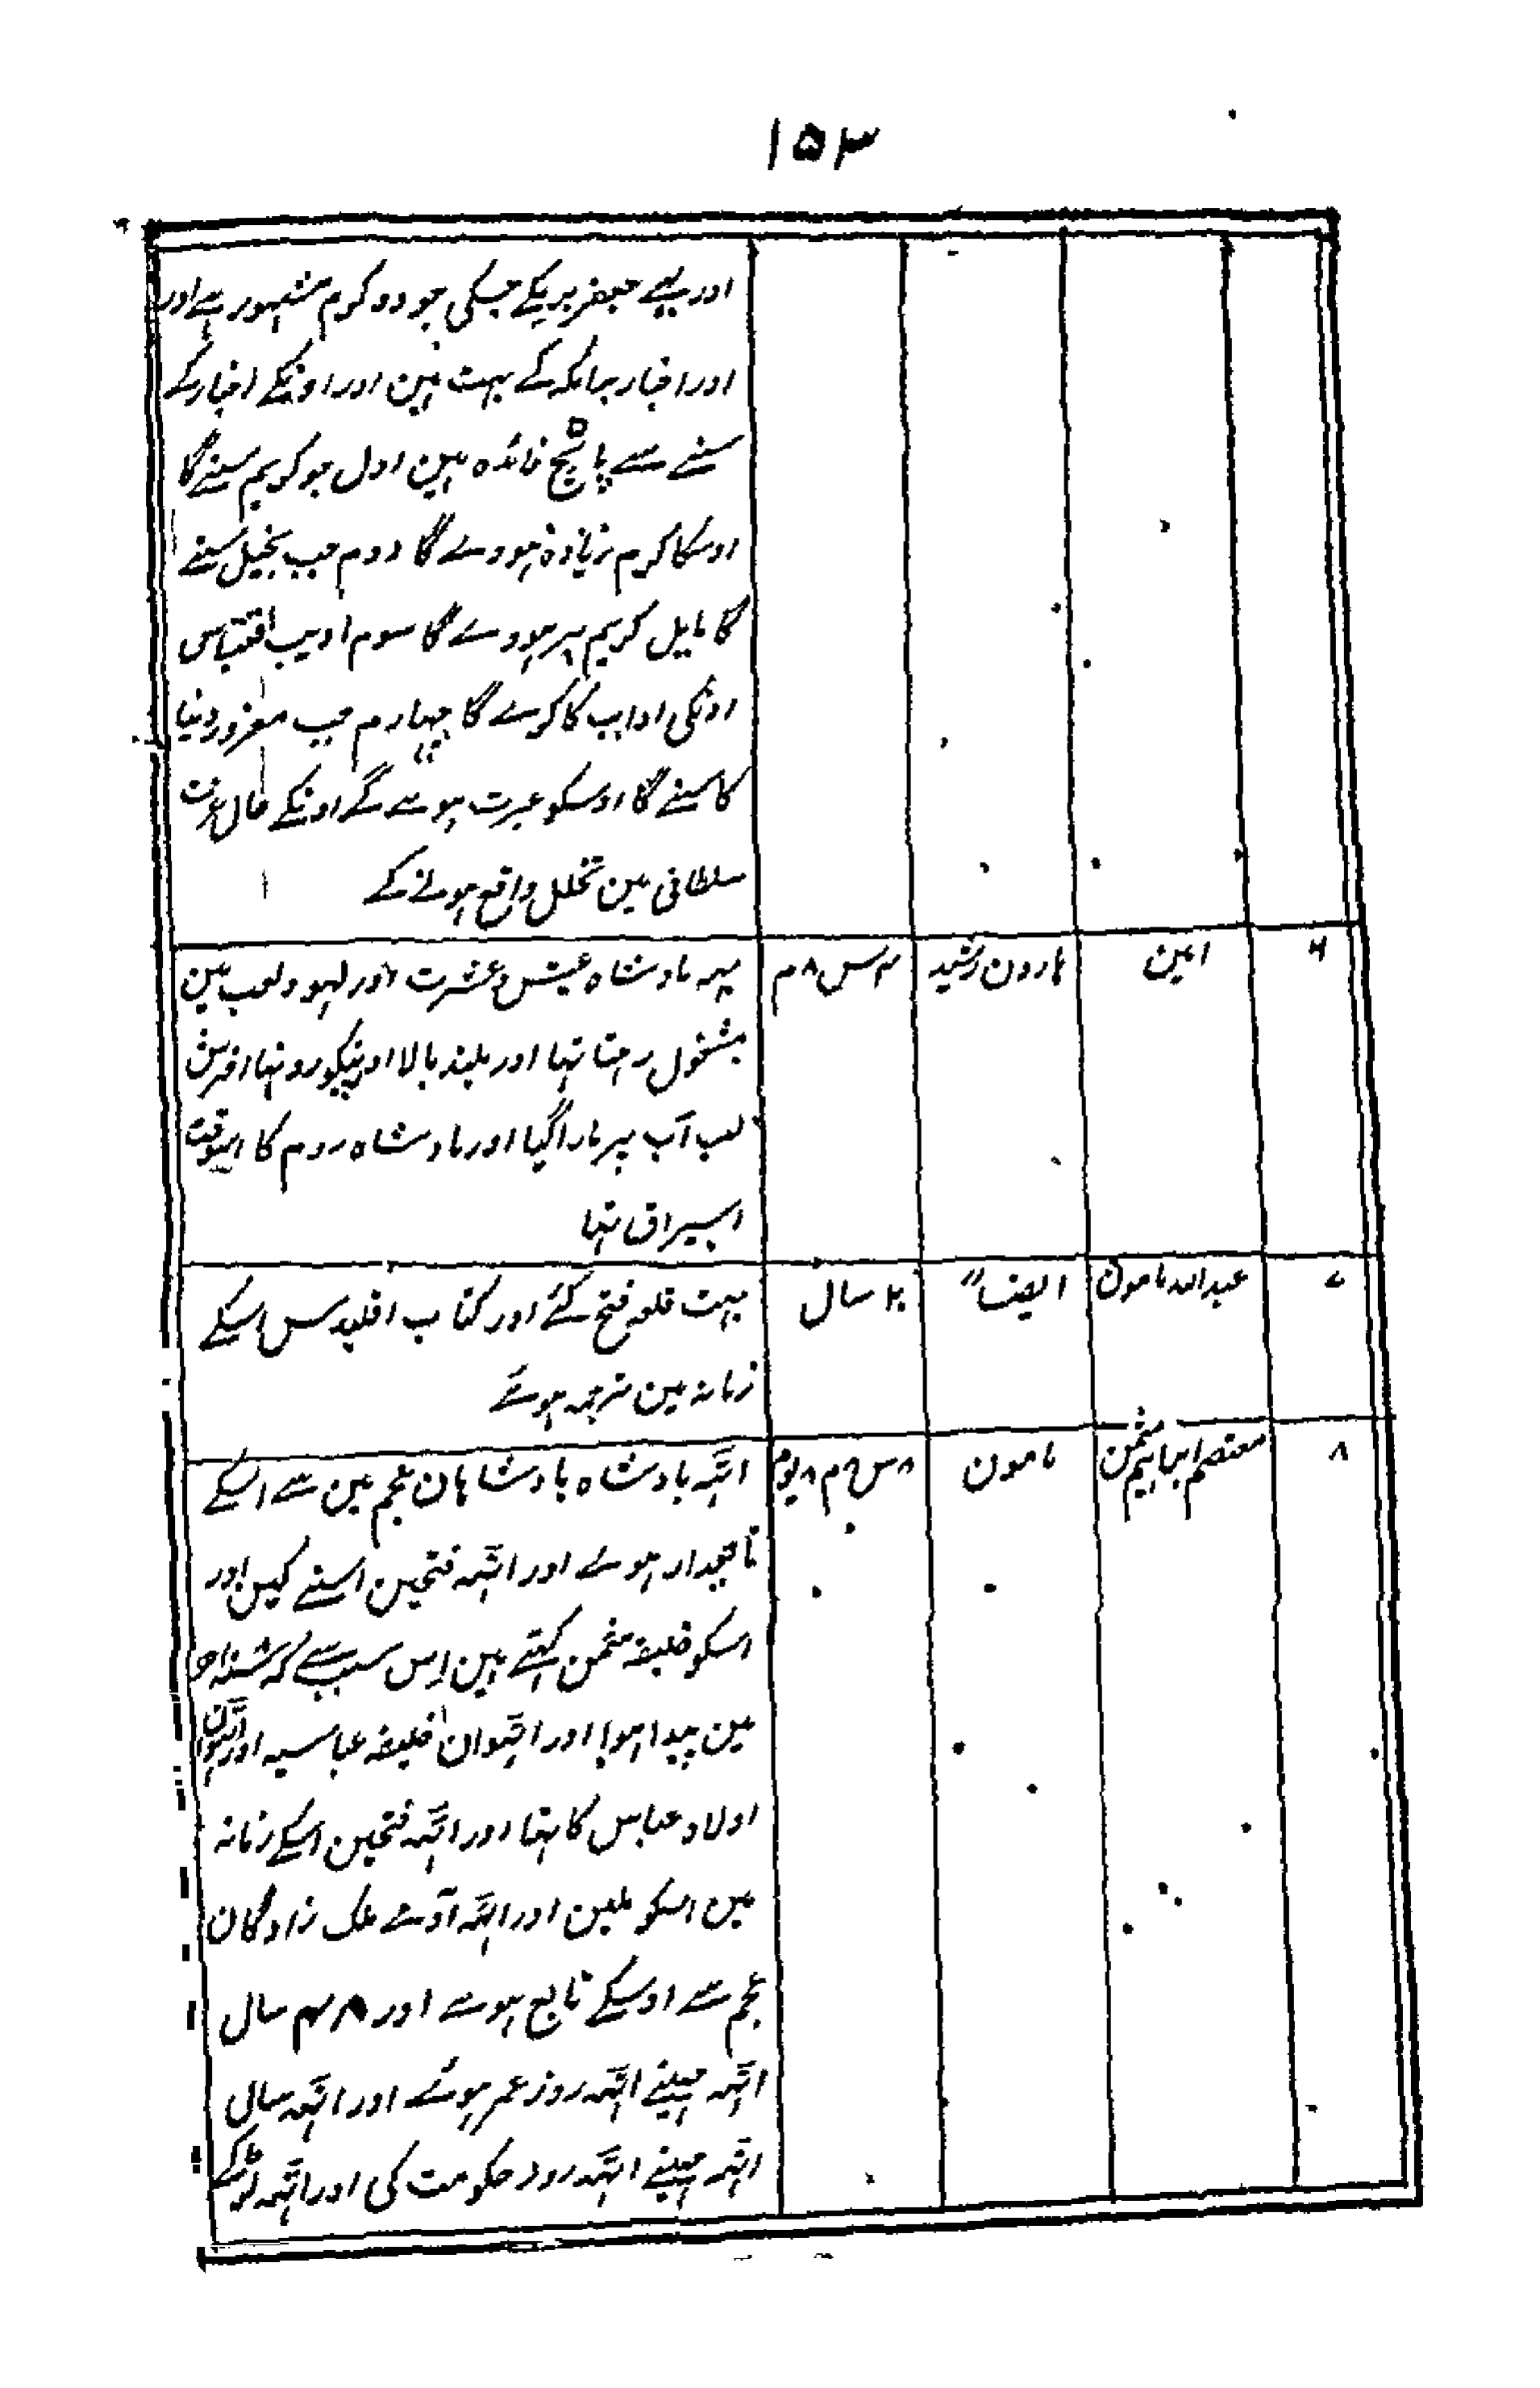 ۱۵۳
اور یحیے جعفر برمکے جسکی جود و کرم مشہور ہے اور
اور اخبار برامکہ کے بہت ہین اور اونکے اخبار کے
سننے سے پانچ فائدہ ہین اول جو کریم سنے گا
اوسکا کرم زیادہ ہووے گا دوم جب بخیل سنے
گا مایل کریم پر ہووے گا سوم ادیب اقتباس
اونکی اداب کا کرے گا چہارم جب مغرور دنیا
کا سنے گا اوسکو عبرت ہوے گے اونکے حال
سلطانی مین تخلل واقع ہونے کے
۶ امین ہارون رشید ۴س ۸م یہہ بادشاہ عیش و عشرت اور لہو و لعب مین
مشغول رہتا تہا اور بلند بالا اور نیکو رو تہا آخرش
لب آب پر مارا گیا اور بادشاہ روم کا اسوقت
اسیراق تہا
۷ عبداللہ مامون ایضاً ۲۰ سال بہت قلعہ فتح کئے اور کتاب اقلیدس اسکے
زمانہ مین ترجمہ ہوے
۸ معتصم ابراہیم مثمن مامون ۸س ۸م ۸یوم اٹہہ بادشاہ بادشاہان عجم مین سے اسکے
تابعدار ہوے اور اٹہہ فتحین اسنے کین اور
اسکو خلیفہ مثمن کہتے ہین اس سبب سے کہ
مین پیدا ہوا اور اٹہوان خلیفہ عباسیہ اور اٹہوان
اولاد عباس کا تہا اور اٹہہ فتحین اسکے زمانہ
مین اسکو ملین اور اٹہہ آدمے ملک زادگان
عجم سے اوسکے تابع ہوے اور ۴۸ سال
اٹہہ مہینے اٹہہ روز عمر ہوئے اور اٹہہ سال
اٹہہ مہینے اٹہہ روز حکومت کی اور اٹہہ لڑکے